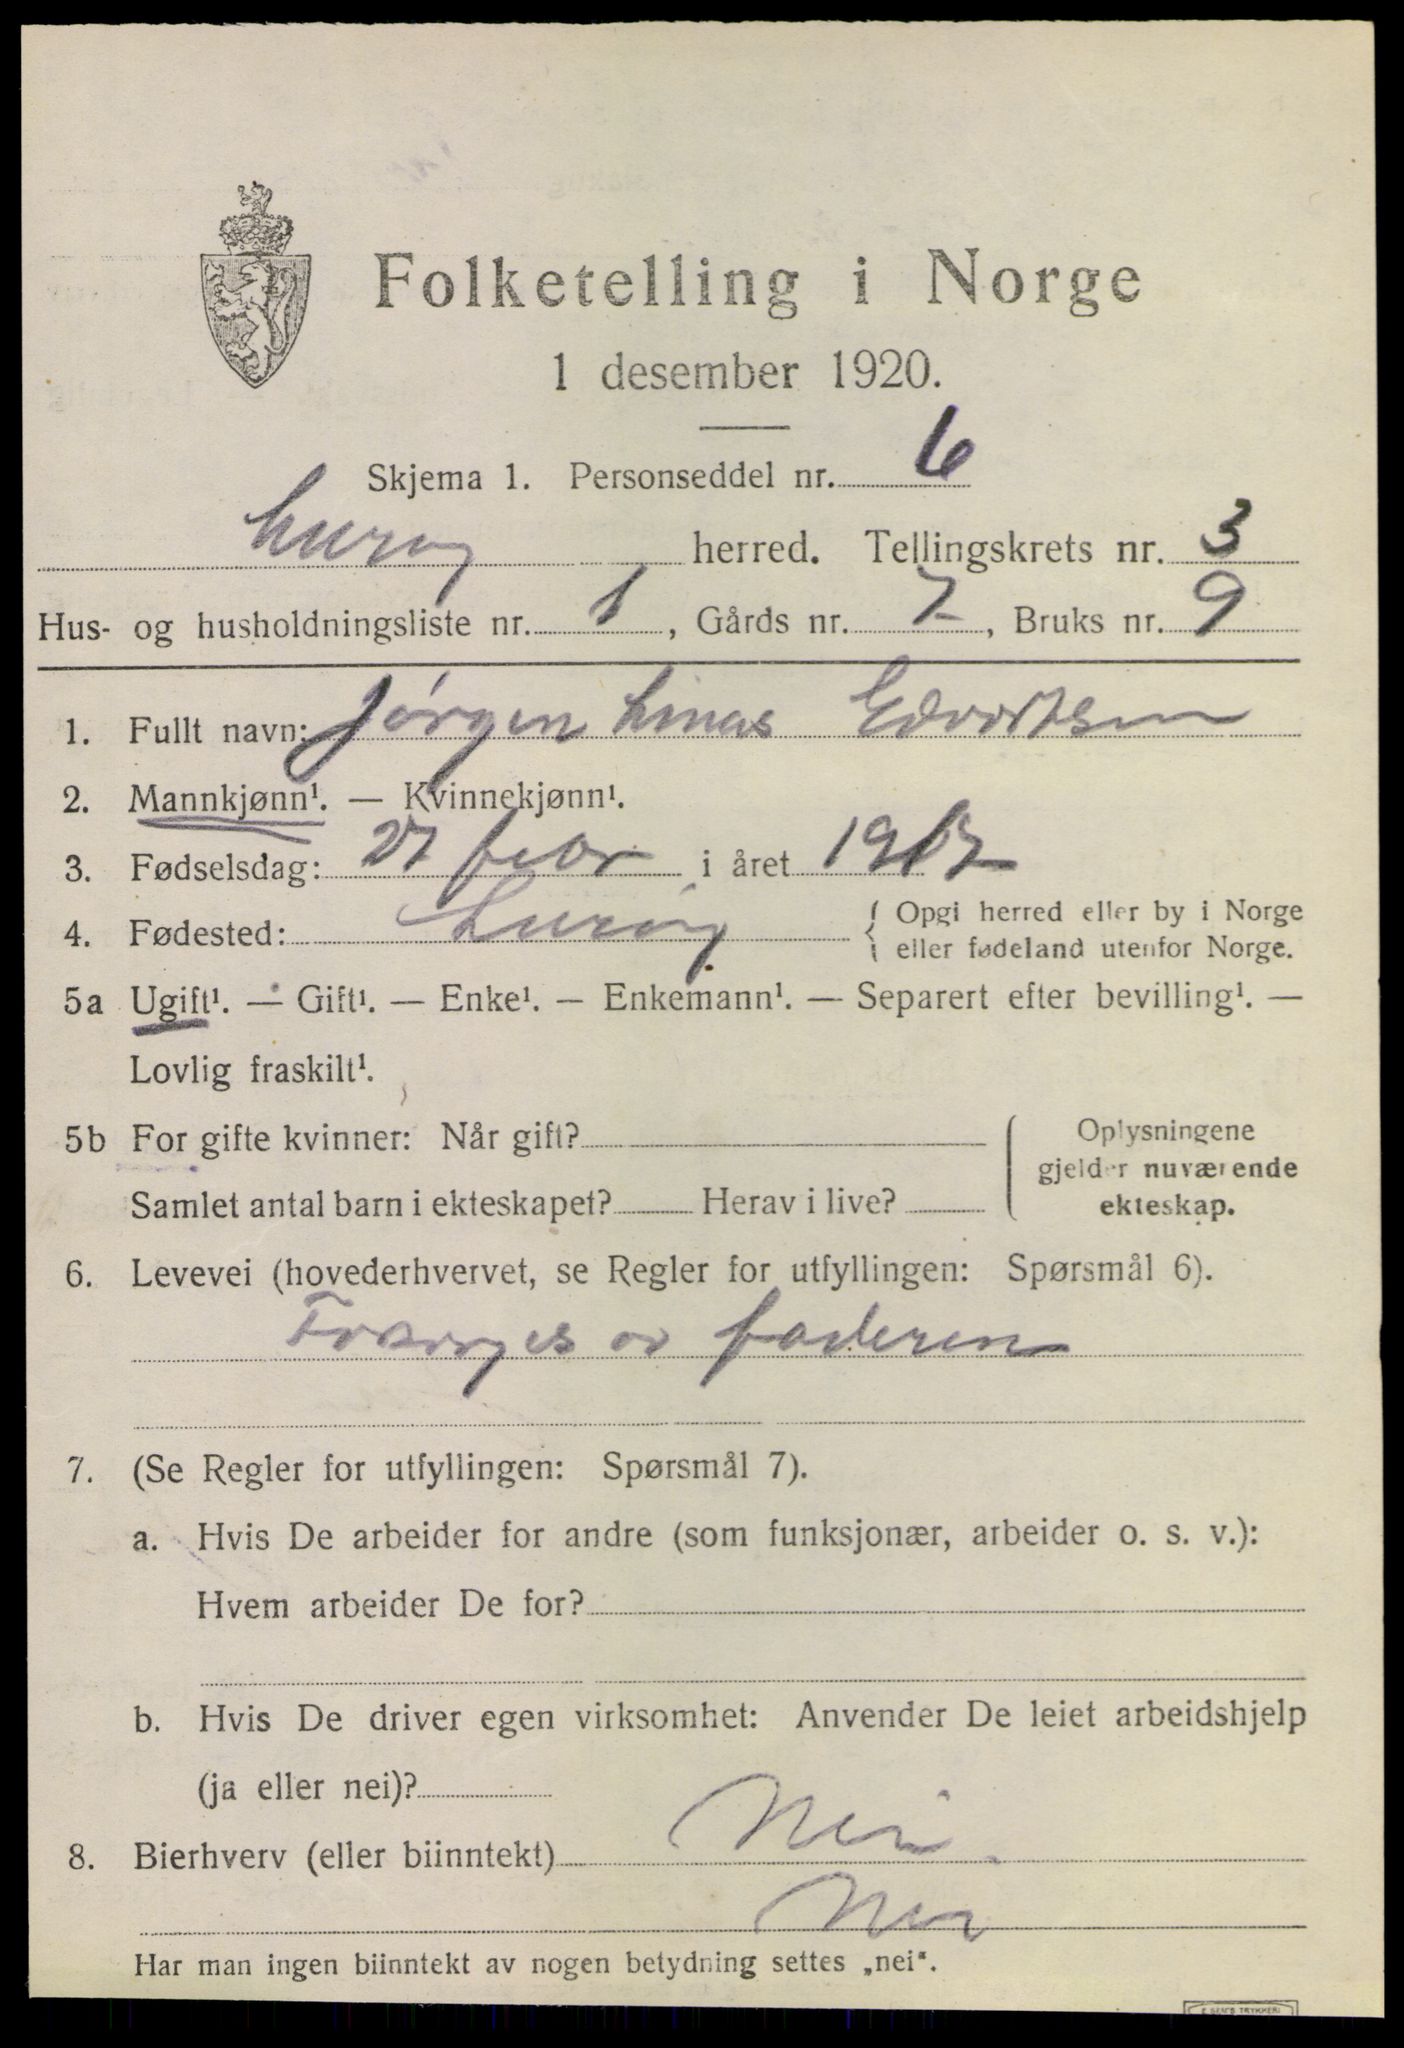 Folketelling i Norge
1 desember 1920.
Skjema 1. Personseddel nr. 6
Lurøy herred. Tellingskrets nr. 3
Hus- og husholdningsliste nr. 1, Gårds nr. 7, Bruks nr. 9
1. Fullt navn: Jørgen Linus Edvartsen
2. Mannkjønn¹. — Kvinnekjønn¹.
3. Fødselsdag: 27 febr i året
4. Fødested: Lurøy { Opgi herred eller by i Norge
eller fødeland utenfor Norge.
5a Ugift¹. — Gift¹. — Enke¹. — Enkemann¹. — Separert efter bevilling¹. —
Lovlig fraskilt¹.
5b For gifte kvinner: Når gift?
Samlet antal barn i ekteskapet? Herav i live?
Oplysningene
gjelder nuværende
ekteskap.
6. Levevei (hovederhvervet, se Regler for utfyllingen: Spørsmål 6).
Forsørges av faderen
7. (Se Regler for utfyllingen: Spørsmål 7).
a. Hvis De arbeider for andre (som funksjonær, arbeider o. s. v.):
Hvem arbeider De for?
b. Hvis De driver egen virksomhet: Anvender De leiet arbeidshjelp
(ja eller nei)?
8. Bierhverv (eller biinntekt) Nei
Nei
Har man ingen biinntekt av nogen betydning settes „nei".